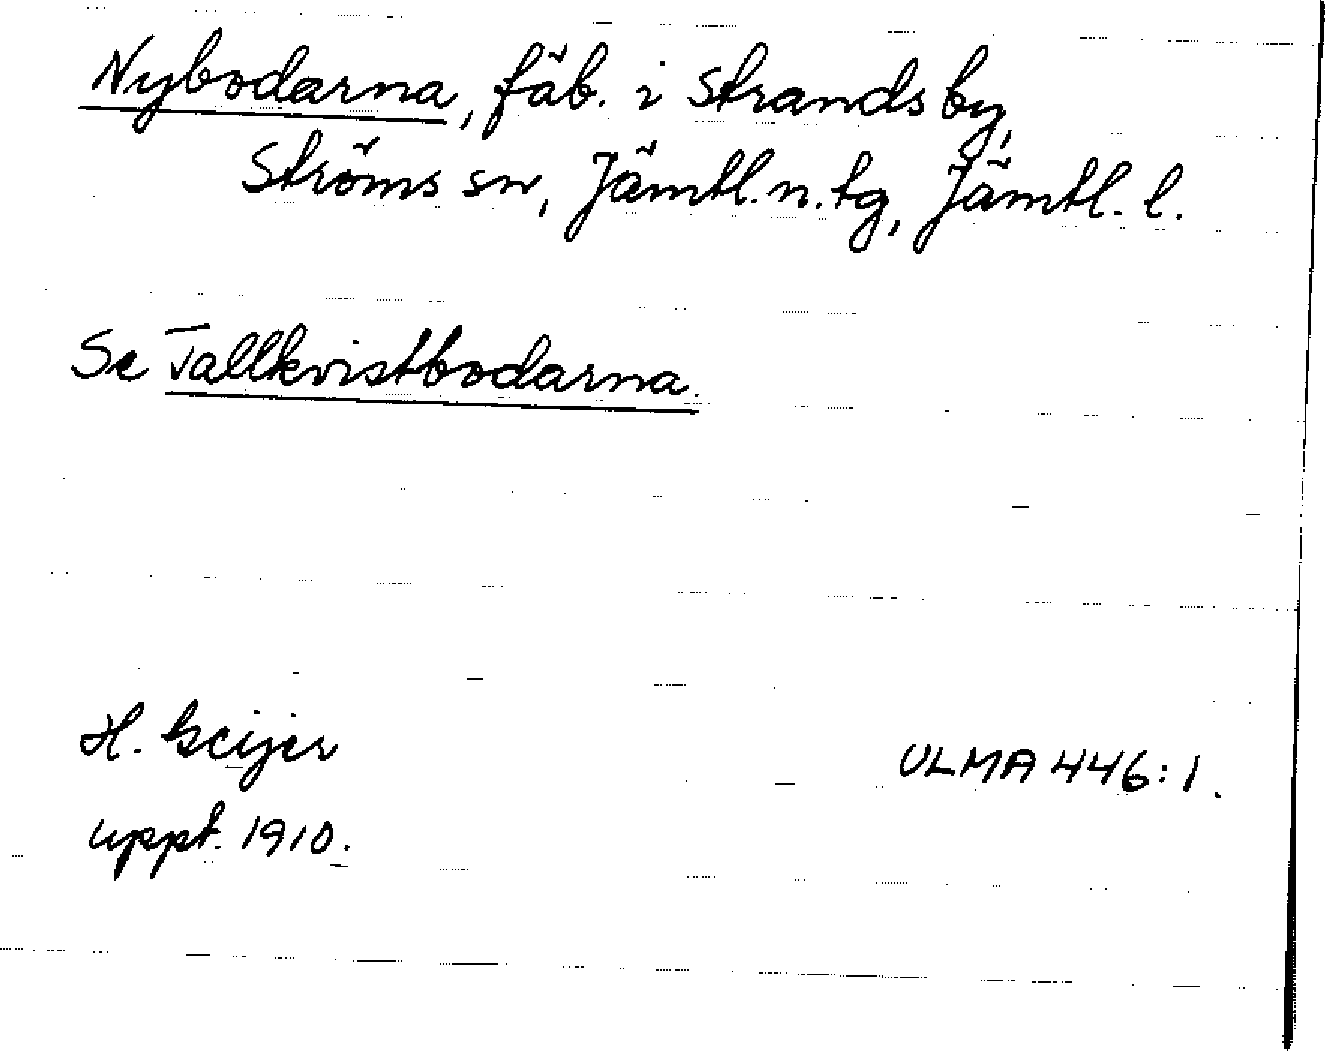 Nybodarna, fäb. i Strands by,
Ströms sn, Jämtl. n. tg, Jämtl. l.
Se Tallkvistbodarna.
H. Geijer
uppt. 1910.
ULMA 446:1.